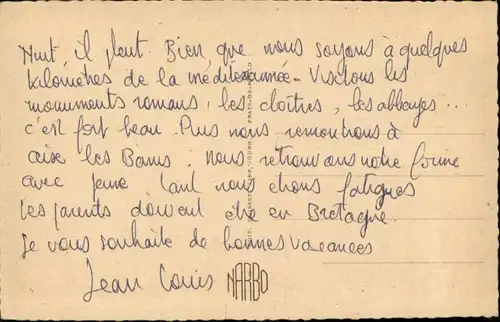 Nuit, il pleut. Bien, que nous soyons à quelques
kilomètres de la méditerannée - Visitons les
monuments romans, les cloîtres, les abbayes...
c'est fort beau. Puis nous remontrons à
les Bains. Nous retrouvons notre
avec peine tant nous étions fatigués
Les parents doivent être en Bretagne.
Je vous souhaite de bonnes vacances
Jean Louis NARBO